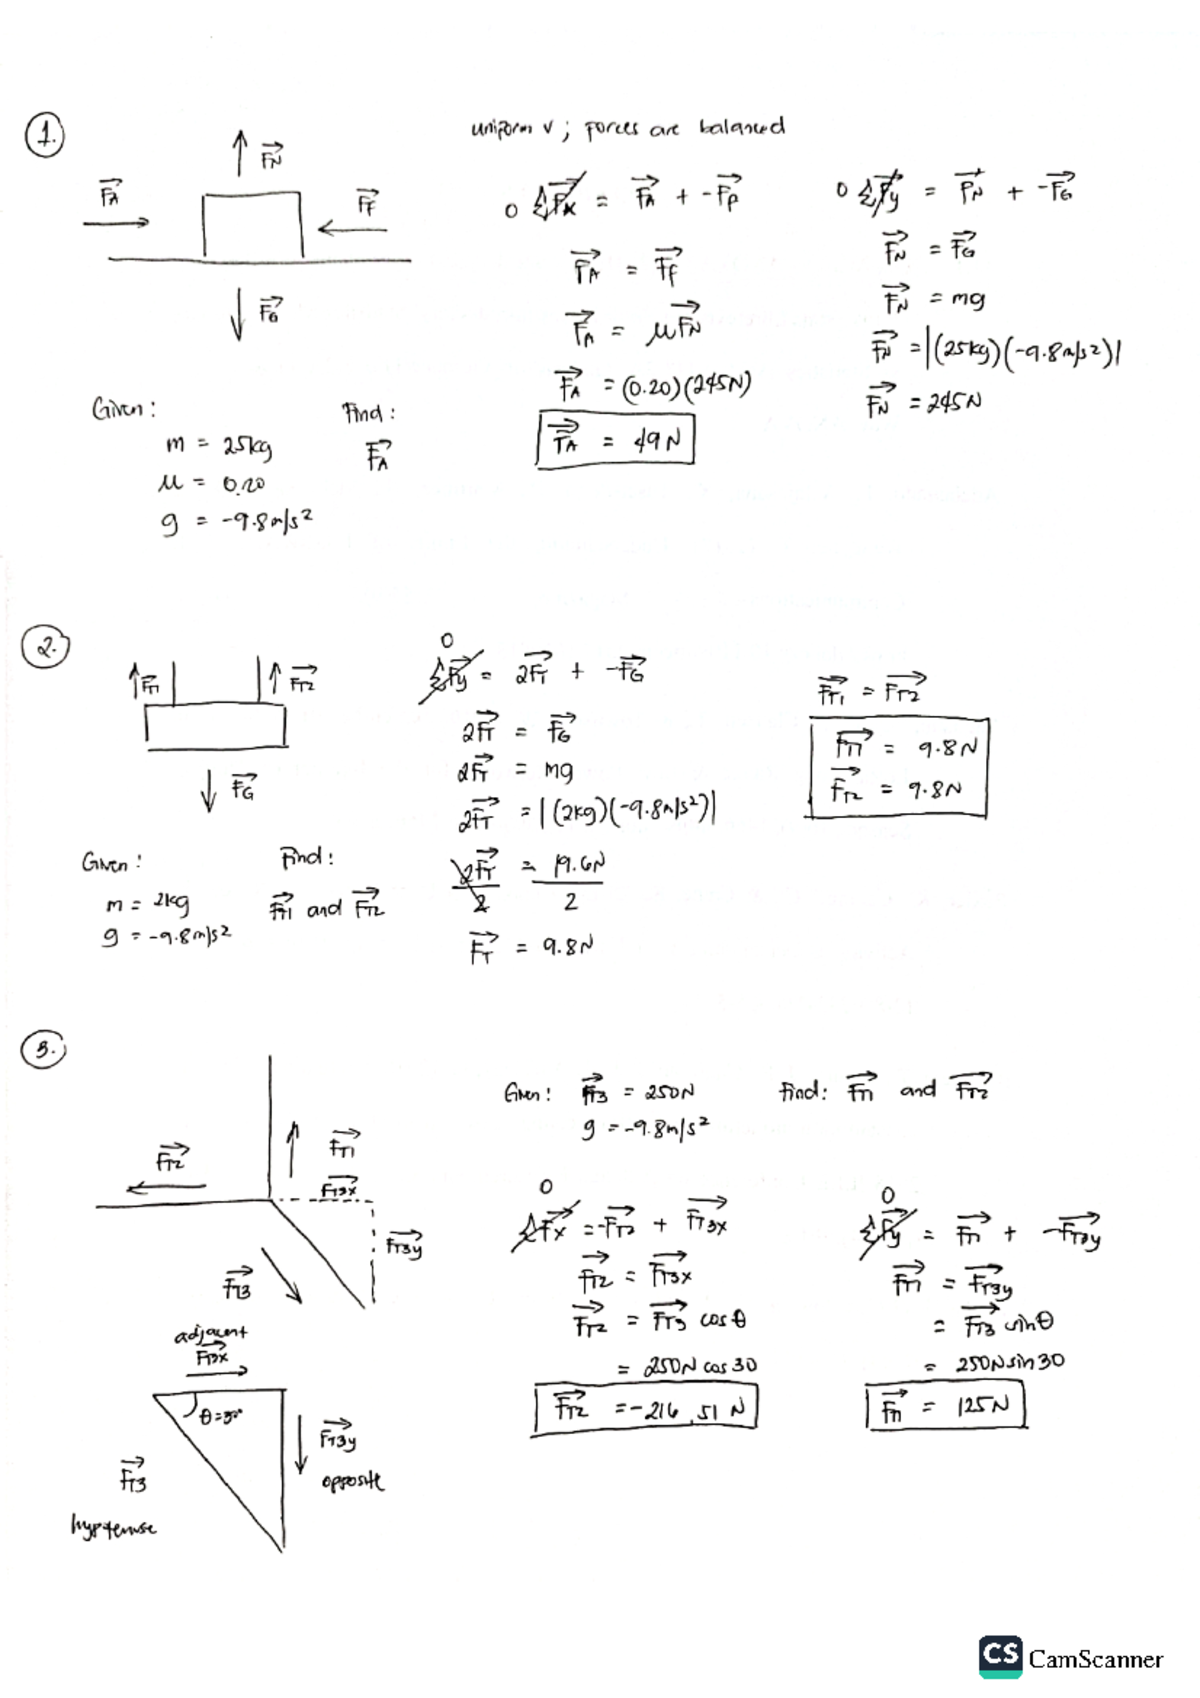 1.
uniform v ; forces are balanced
FN
FA
Ff
FG
0 ΣFx = FA + -Ff
FA = Ff
FA = μFN
FA = (0.20)(245N)
FA = 49N
0 ΣFy = FN + -FG
FN = FG
FN = mg
FN = |(25kg)(-9.8m/s²)|
FN = 245N
Given:
m = 25kg
μ = 0.20
g = -9.8m/s²
Find:
FA
2.
FT1
FT2
FG
Given:
m = 2kg
g = -9.8m/s²
Find:
FT1 and FT2
0
ΣFy = 2FT + -FG
2FT = FG
2FT = mg
2FT = |(2kg)(-9.8m/s²)|
2FT = 19.6N
2 2
FT = 9.8N
FT1 = FT2
FT1 = 9.8N
FT2 = 9.8N
3.
FT2
FT1
FT3x
FT3y
FT3
adjacent
FT3x
θ=30°
FT3y
opposite
FT3
hyptenuse
Given: FT3 = 250N
g = -9.8m/s²
Find: FT1 and FT2
0
ΣFx = -FT2 + FT3x
FT2 = FT3x
FT2 = FT3 cosθ
= 250N cos 30
FT2 = -216.51 N
0
ΣFy = FT1 + -FT3y
FT1 = FT3y
= FT3 sinθ
= 250N sin 30
FT1 = 125N
CS CamScanner